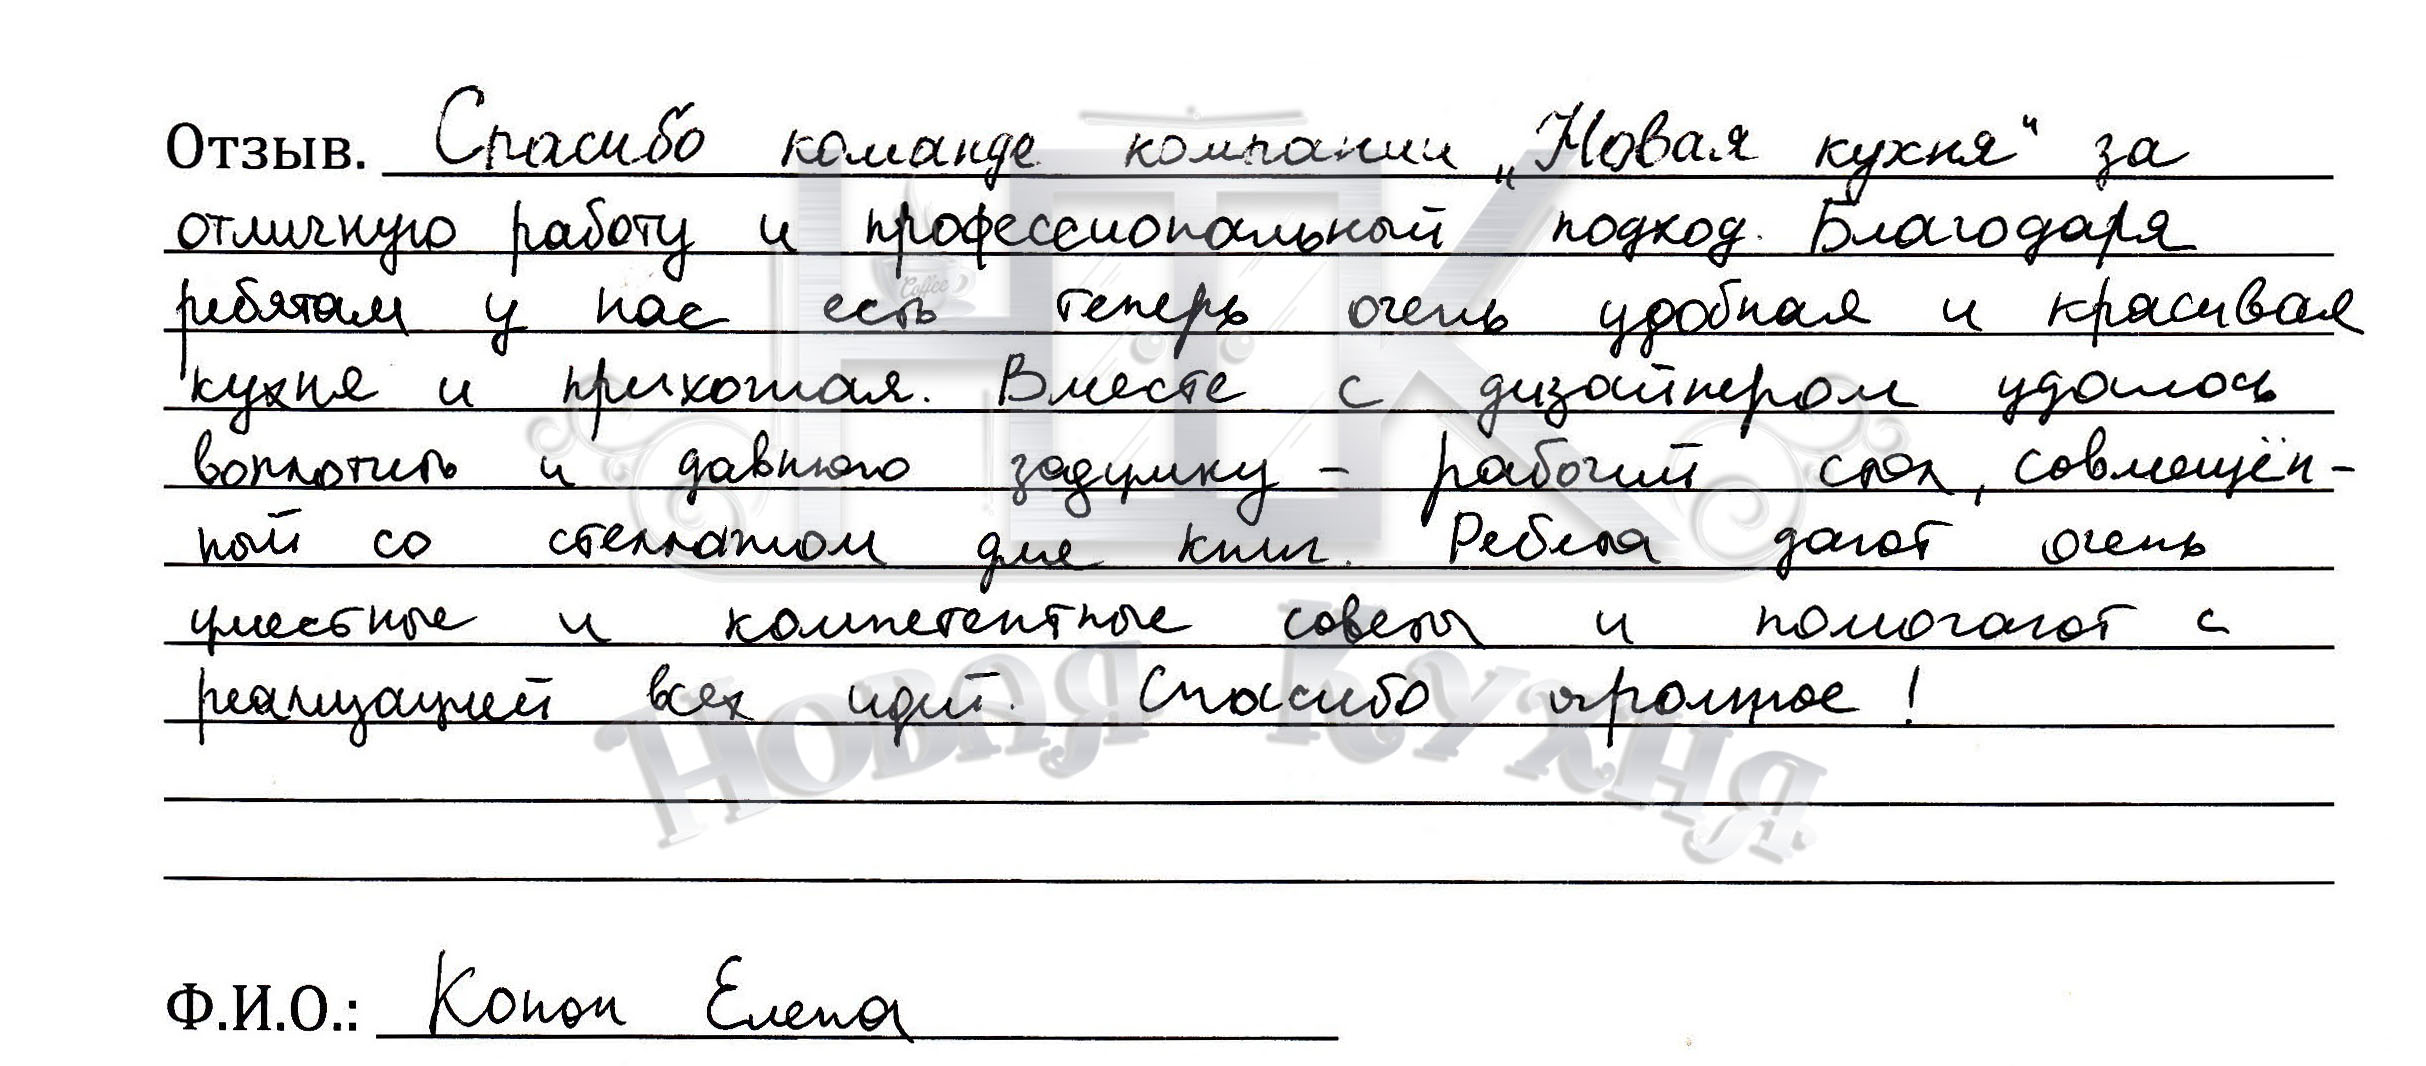 Отзыв. Спасибо команде компании „Новая кухня“ за
отличную работу и профессиональный подход. Благодаря
ребятам у нас есть теперь очень удобная и красивая
кухня и прихожая. Вместе с дизайнером удалось
воплотить и давнюю задумку – рабочий стол, совмещён-
ный со стеллажом для книг. Ребята дают очень
уместные и компетентные советы и помогают с
реализацией всех идей. Спасибо огромное!
Ф.И.О.: Конон Елена
НТК
Coffee
Новая Кухня